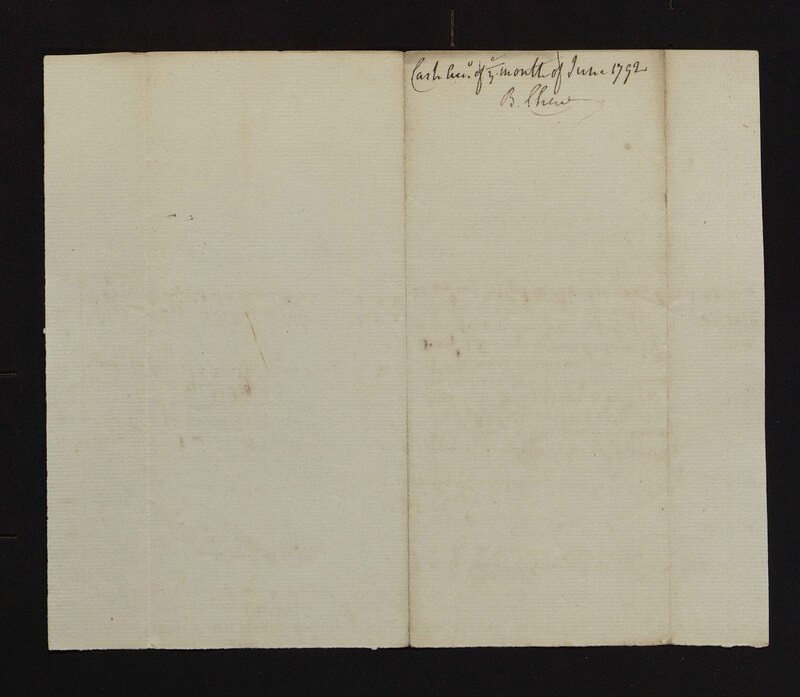 Cash Accᵗ of yᵉ month of June 1792
B. Chew